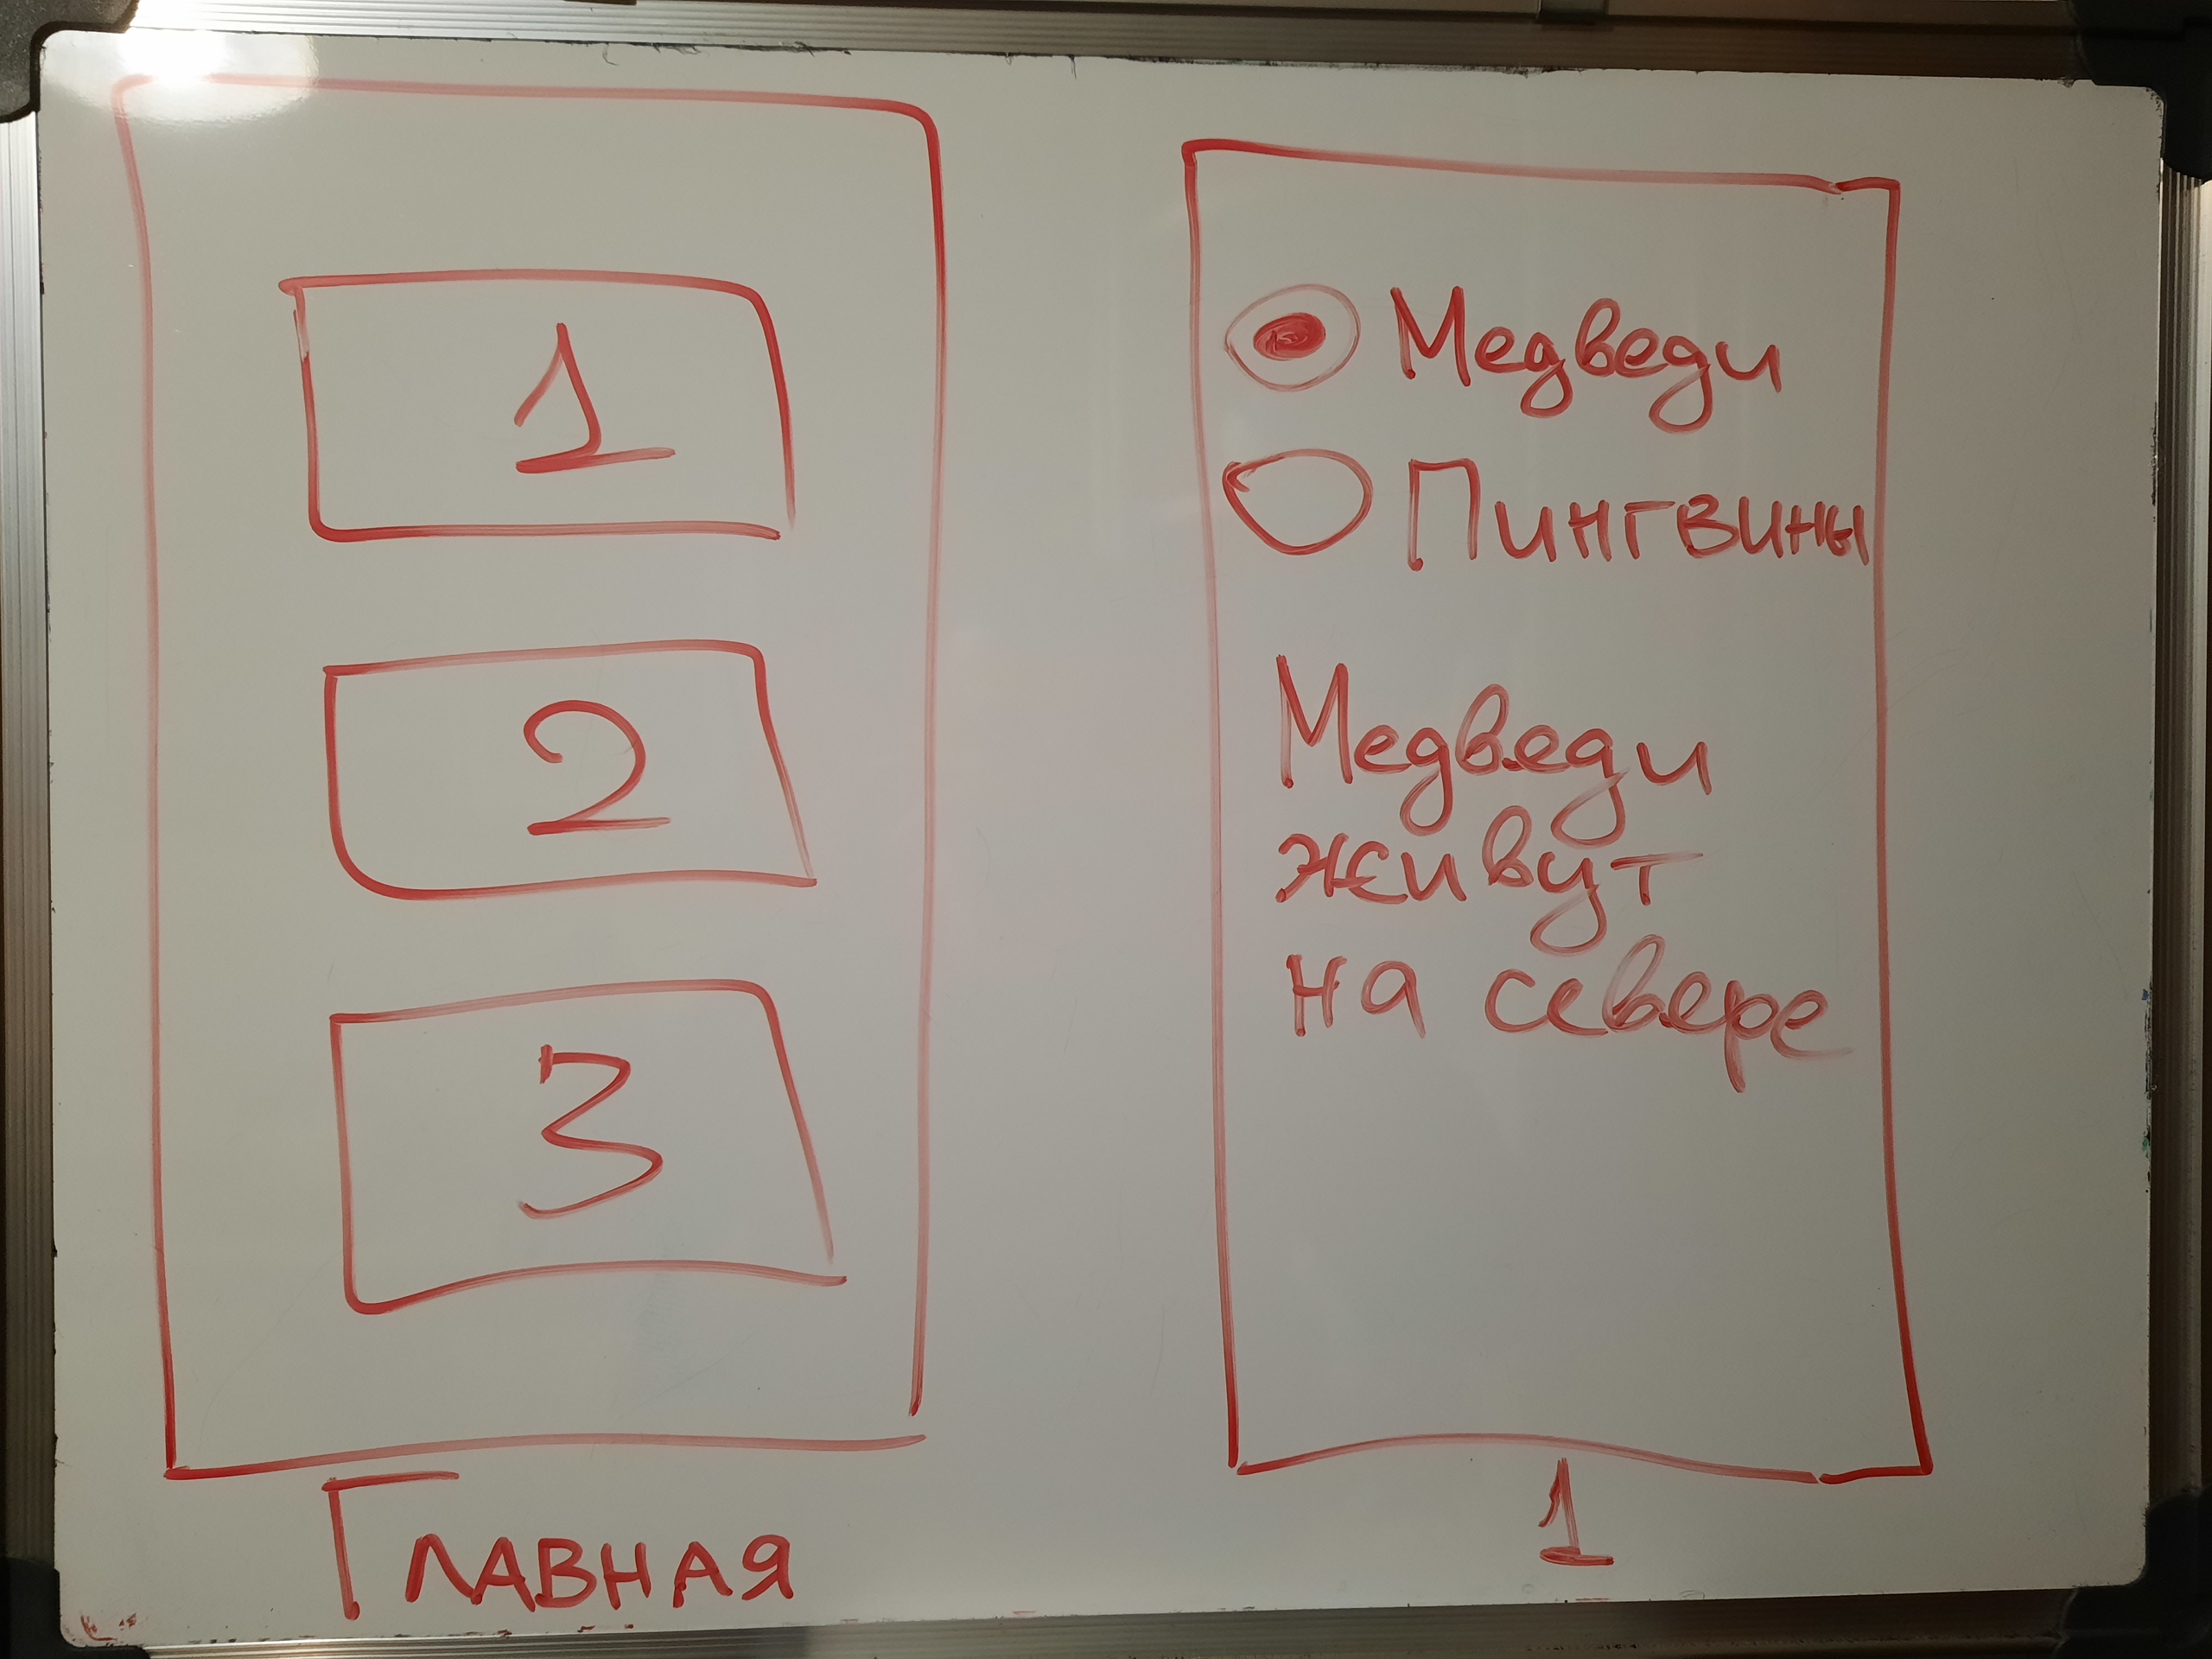 1
2
3
Главная
Медведи
Пингвины
Медведи
живут
на севере
1